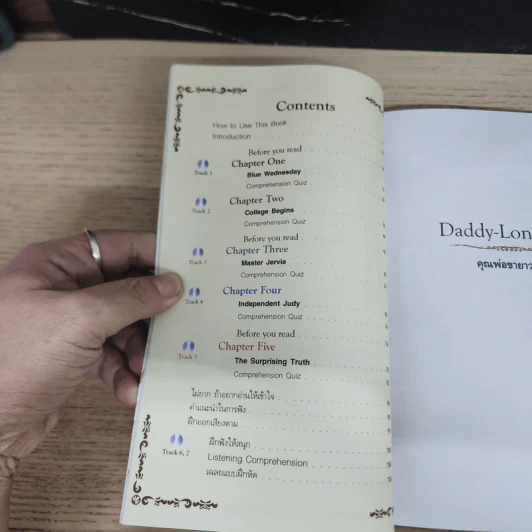 Contents
How to Use This Book
Introduction
Before you read
Chapter One
Track 1
Blue Wednesday
Comprehension Quiz
Chapter Two
Track 2
College Begins
Comprehension Quiz
Before you read
Chapter Three
Track 3
Master Jervie
Comprehension Quiz
Chapter Four
Track 4
Independent Judy
Comprehension Quiz
Before you read
Chapter Five
Track 5
The Surprising Truth
Comprehension Quiz
ไม่ยาก ถ้าอยากอ่านให้เข้าใจ
คำแนะนำในการฟัง
ฝึกออกเสียงตาม
ฝึกฟังให้สนุก
Track 6, 7
Listening Comprehension
เฉลยแบบฝึกหัด
Daddy-Lon
คุณพ่อขายาว